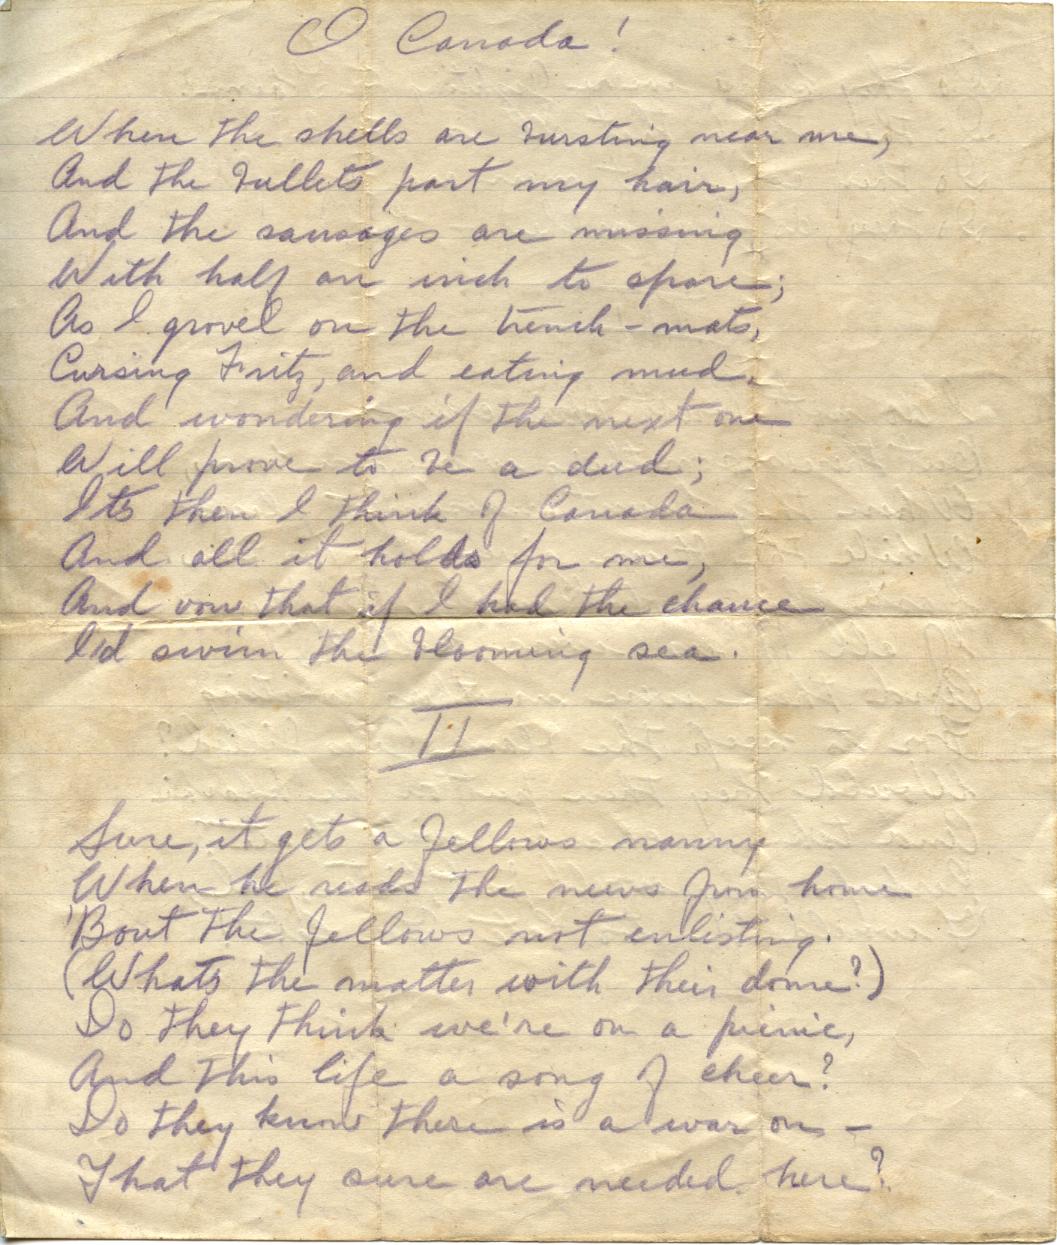 O Canada!
When the shells are bursting near me,
And the bullets part my hair,
And the sausages are missing
With half an inch to spare;
As I grovel on the trench-mats,
Cursing Fritz, and eating mud,
And wondering if the next one
Will prove to be a dud;
Its then I think of Canada
And all it holds for me,
And vow that if I had the chance
I'd swim the blooming sea.
II
Sure, it gets a fellows nanny
When he reads the news from home
'Bout the fellows not enlisting.
(Whats the matter with their dome?)
Do they think we're on a picnic,
And this life a song of cheer?
Do they know there is a war on –
That they sure are needed here?